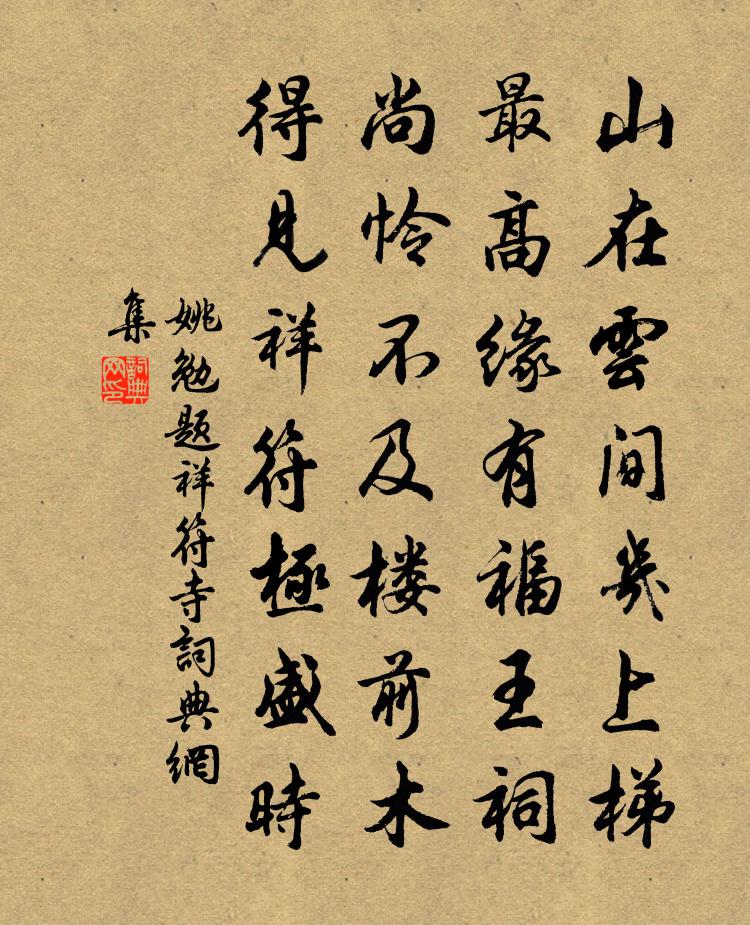 山在雲間幾上梯
最高緣有福王祠
尚怜不及楼前木
得見祥符極盛時
姚勉題祥符寺詞典網
集
詞典網印